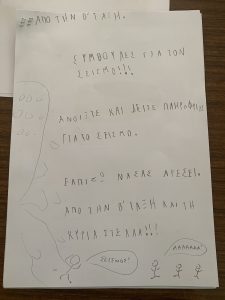 ΑΠΟ ΤΗΝ Θ΄ΤΑΞΗ.
ΣΥΜΒΟΥΛΕΣ ΓΙΑ ΤΟΝ
ΣΕΙΣΜΟ!!!
ΑΝΟΙΞΤΕ ΚΑΙ ΔΕΙΤΕ ΠΛΗΡΟΦΟΡΙΕΣ
ΓΙΑ ΤΟ ΣΕΙΣΜΟ.
ΕΛΠΙΖΩ ΝΑ ΣΑΣ ΑΡΕΣΕΙ.
ΑΠΟ ΤΗΝ Θ΄ΤΑΞΗ ΚΑΙ ΤΗ
ΚΥΡΙΑ ΣΤΕΛΛΑ!!!
ΣΕΙΣΜΟΣ!
ΑΑΑΑΑΑΑ!